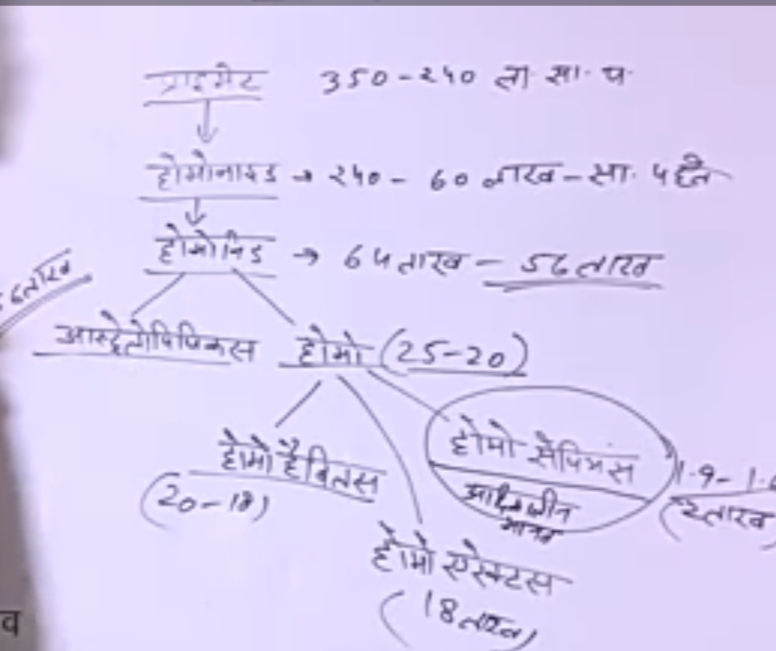 प्राइमेट 350-240 ला. सा. प.
होमोनाइड → 240 - 60 लाख - सा. पहले
होमोनिड → 64 लाख - 56 लाख
56 लाख
आस्ट्रेलोपिथिकस होमो (25-20)
होमो हैबिलस (20-18)
होमो सेपियंस
आधुनिक मानव
1.9-1.6
(2 लाख)
होमो एरेक्टस
(18 लाख)
व